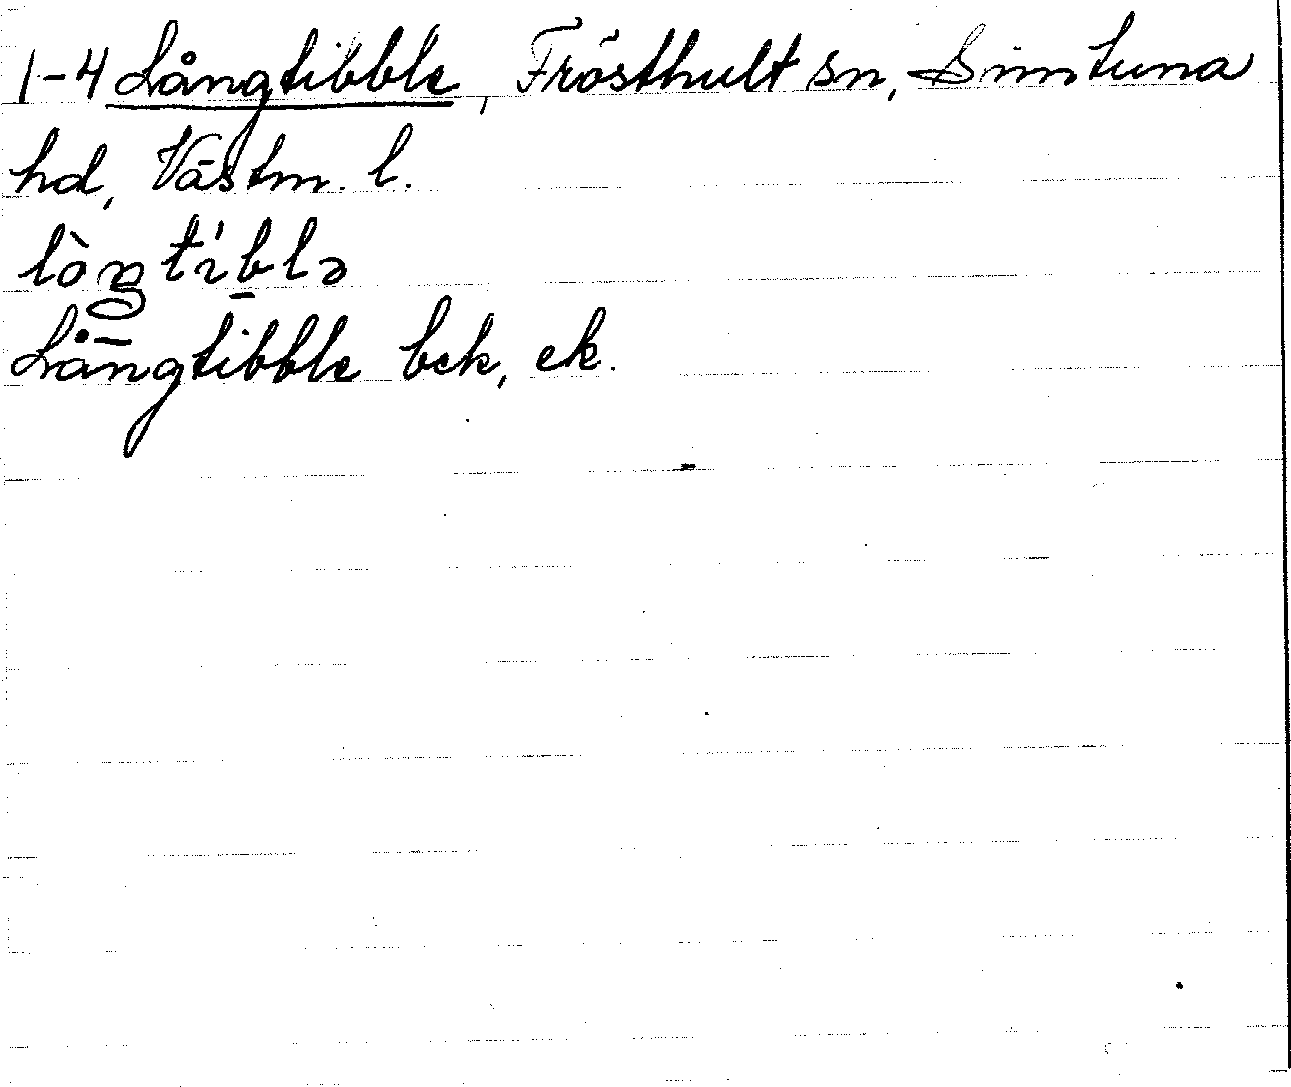 1-4 Långtibble, Frösthult sn, Simtuna
hd, Västm. l.
lòŋtìblə
Långtibble bek, ek.